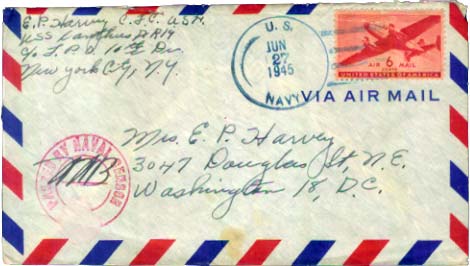 E. P. Harvey C.F.C. USN.
USS Xanthus AR19
c/o F.P.O. 10th Div.
New York City, N.Y.
U. S.
JUN
27
1945
NAVY
AIR 6 MAIL
CENTS
UNITED STATES OF AMERICA
VIA AIR MAIL
Mrs. E. P. Harvey
3047 Douglas St, N.E.
Washington 18, D.C.
PASSED BY NAVAL CENSOR